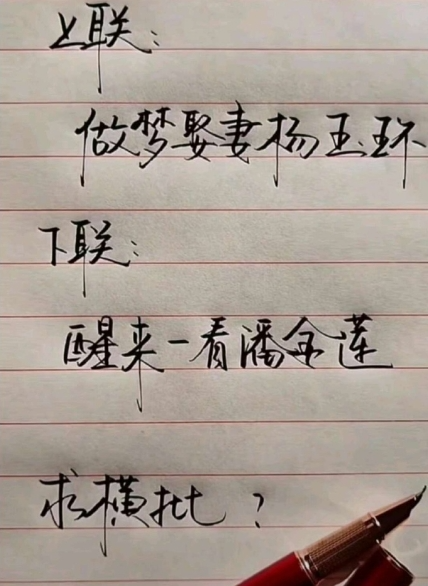 上联:
做梦娶妻杨玉环
下联:
醒来一看潘金莲
求横批?